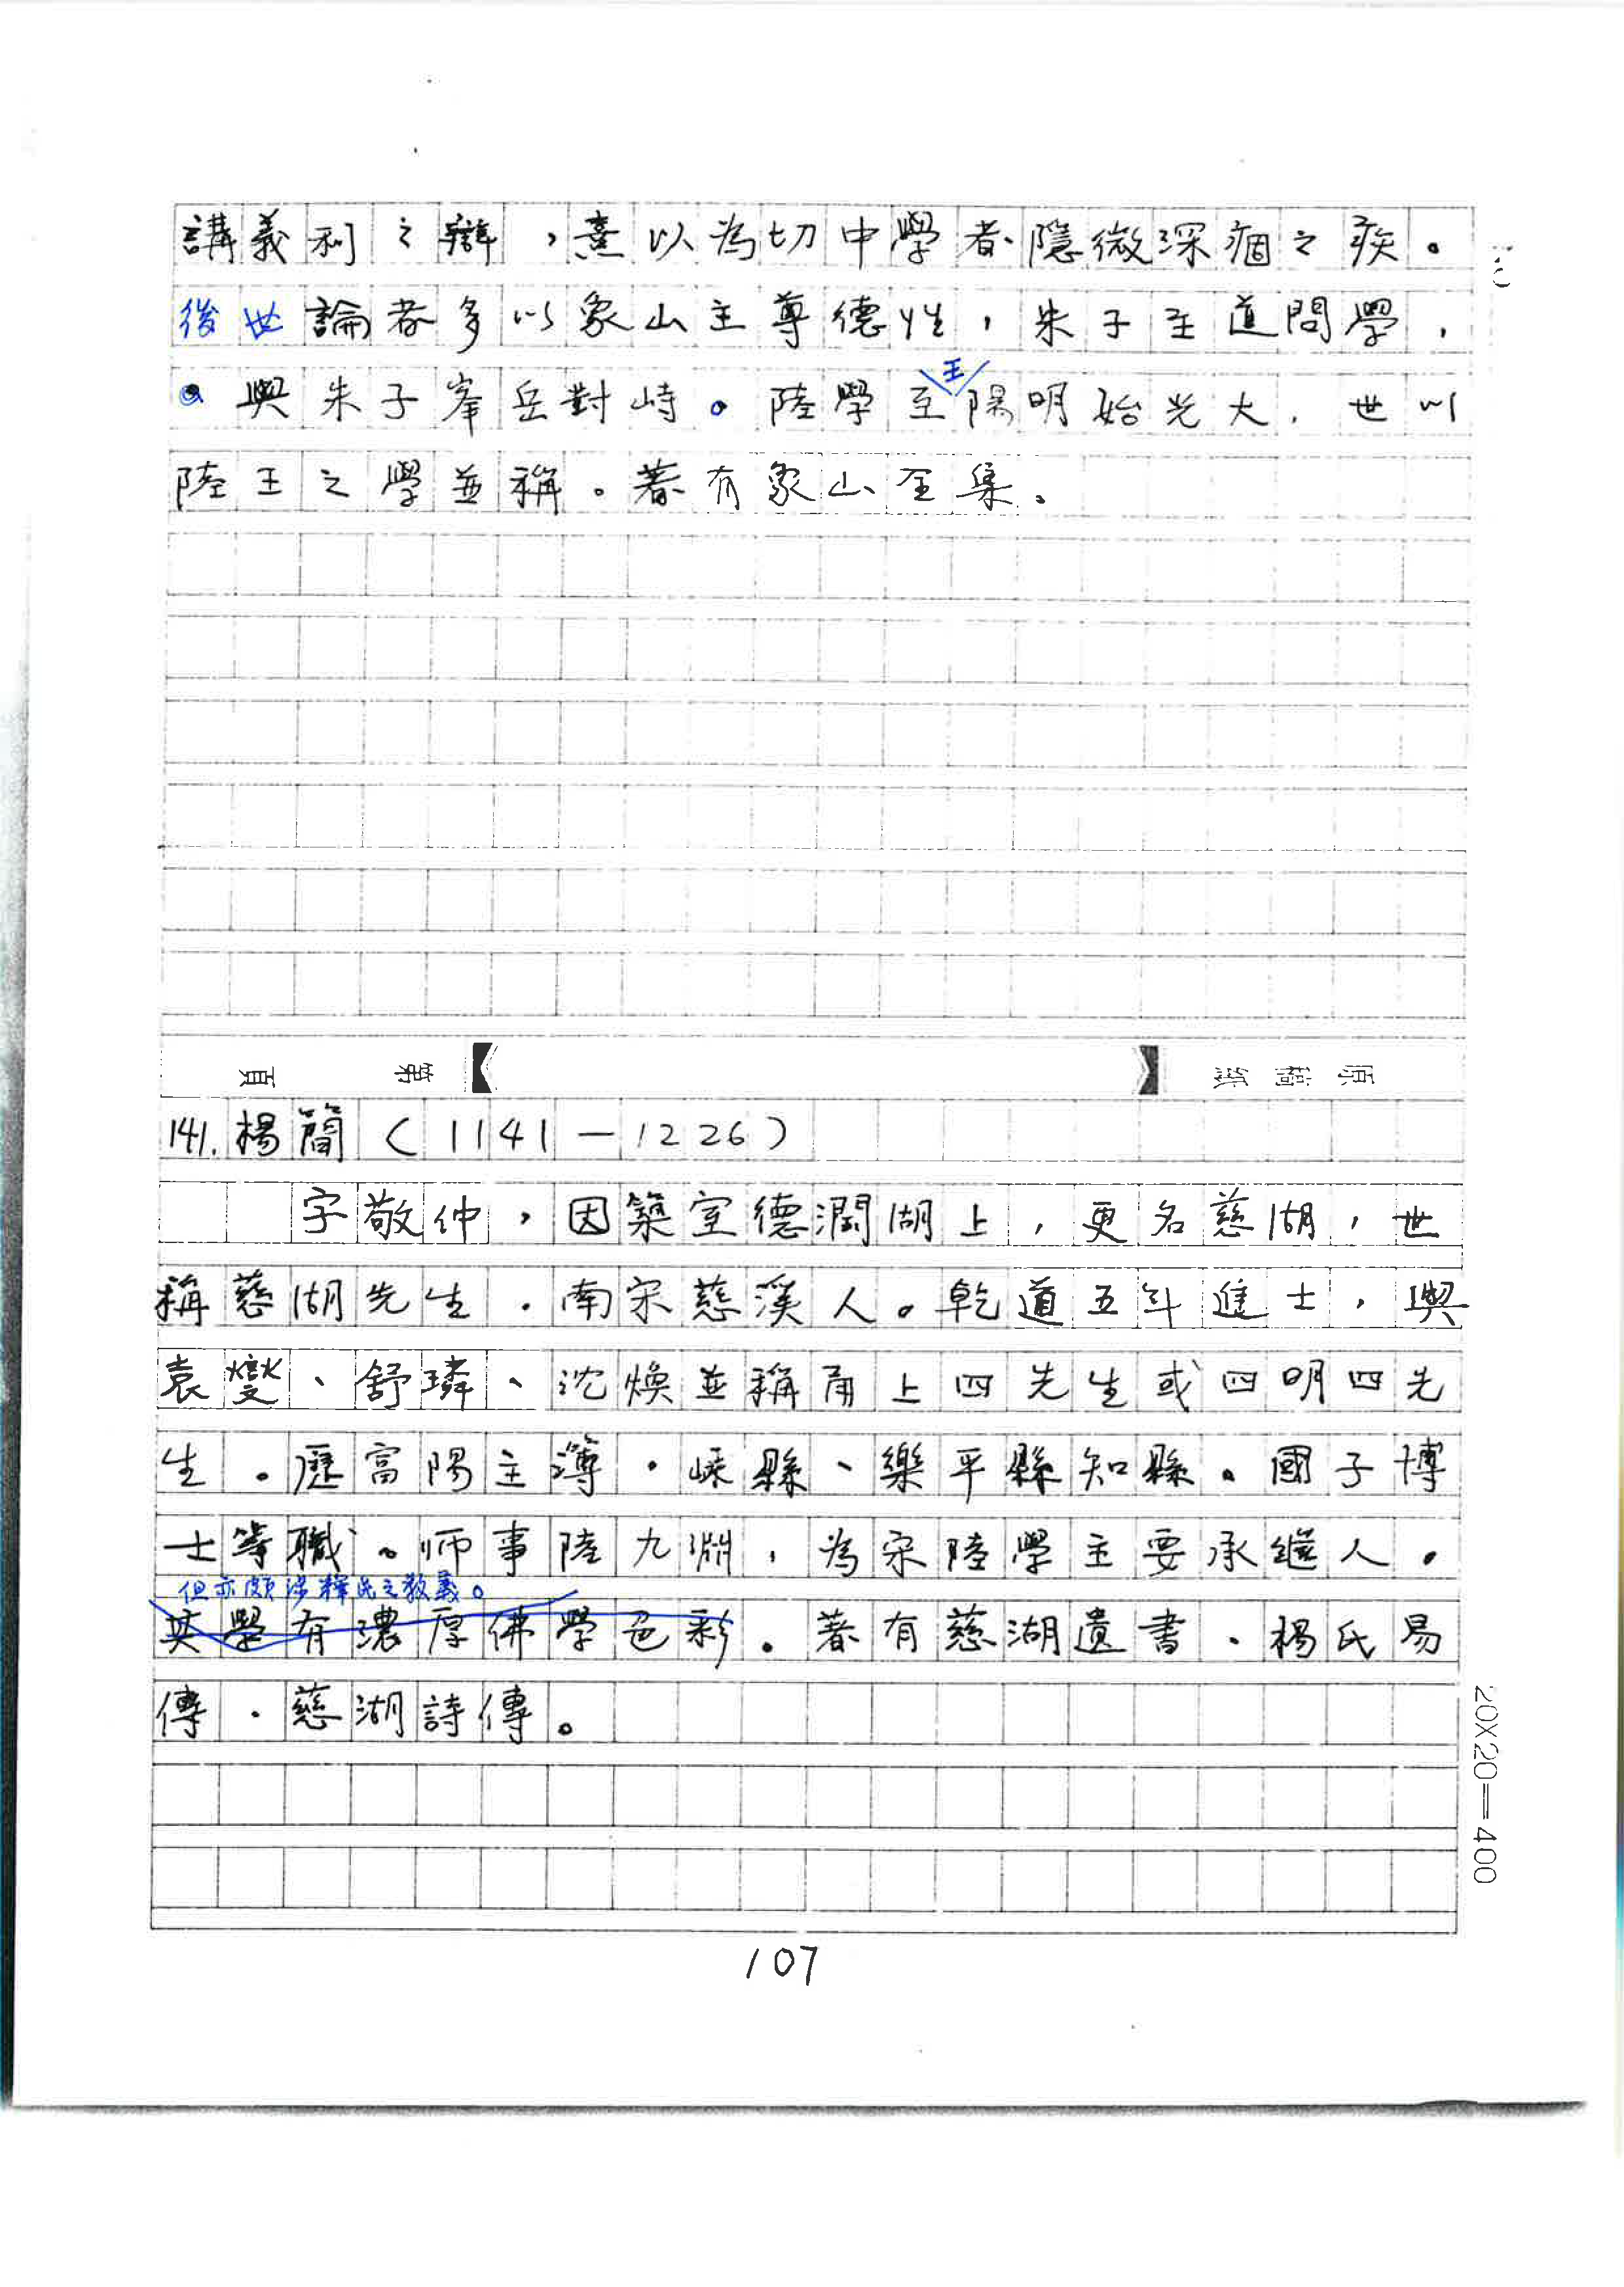 講義利之辯，熹以為切中學者隱微深痼之疾。
後世論者多以象山主尊德性，朱子主道問學，
與朱子峯岳對峙。陸學至王陽明始光大，世以
陸王之學並稱。著有象山全集。
頁 第 原稿紙
141.楊簡(1141—1226)
字敬仲，因築室德潤湖上，更名慈湖，世
稱慈湖先生。南宋慈溪人。乾道五年進士，與
袁燮、舒璘、沈煥並稱甬上四先生或四明四先
生。歷富陽主簿、嵊縣、樂平縣知縣。國子博
士等職。师事陸九淵，為宋陸學主要承繼人。
但亦頗涉釋氏之教義。
其學有濃厚佛學色彩。著有慈湖遺書、楊氏易
傳、慈湖詩傳。
20X20=400
107